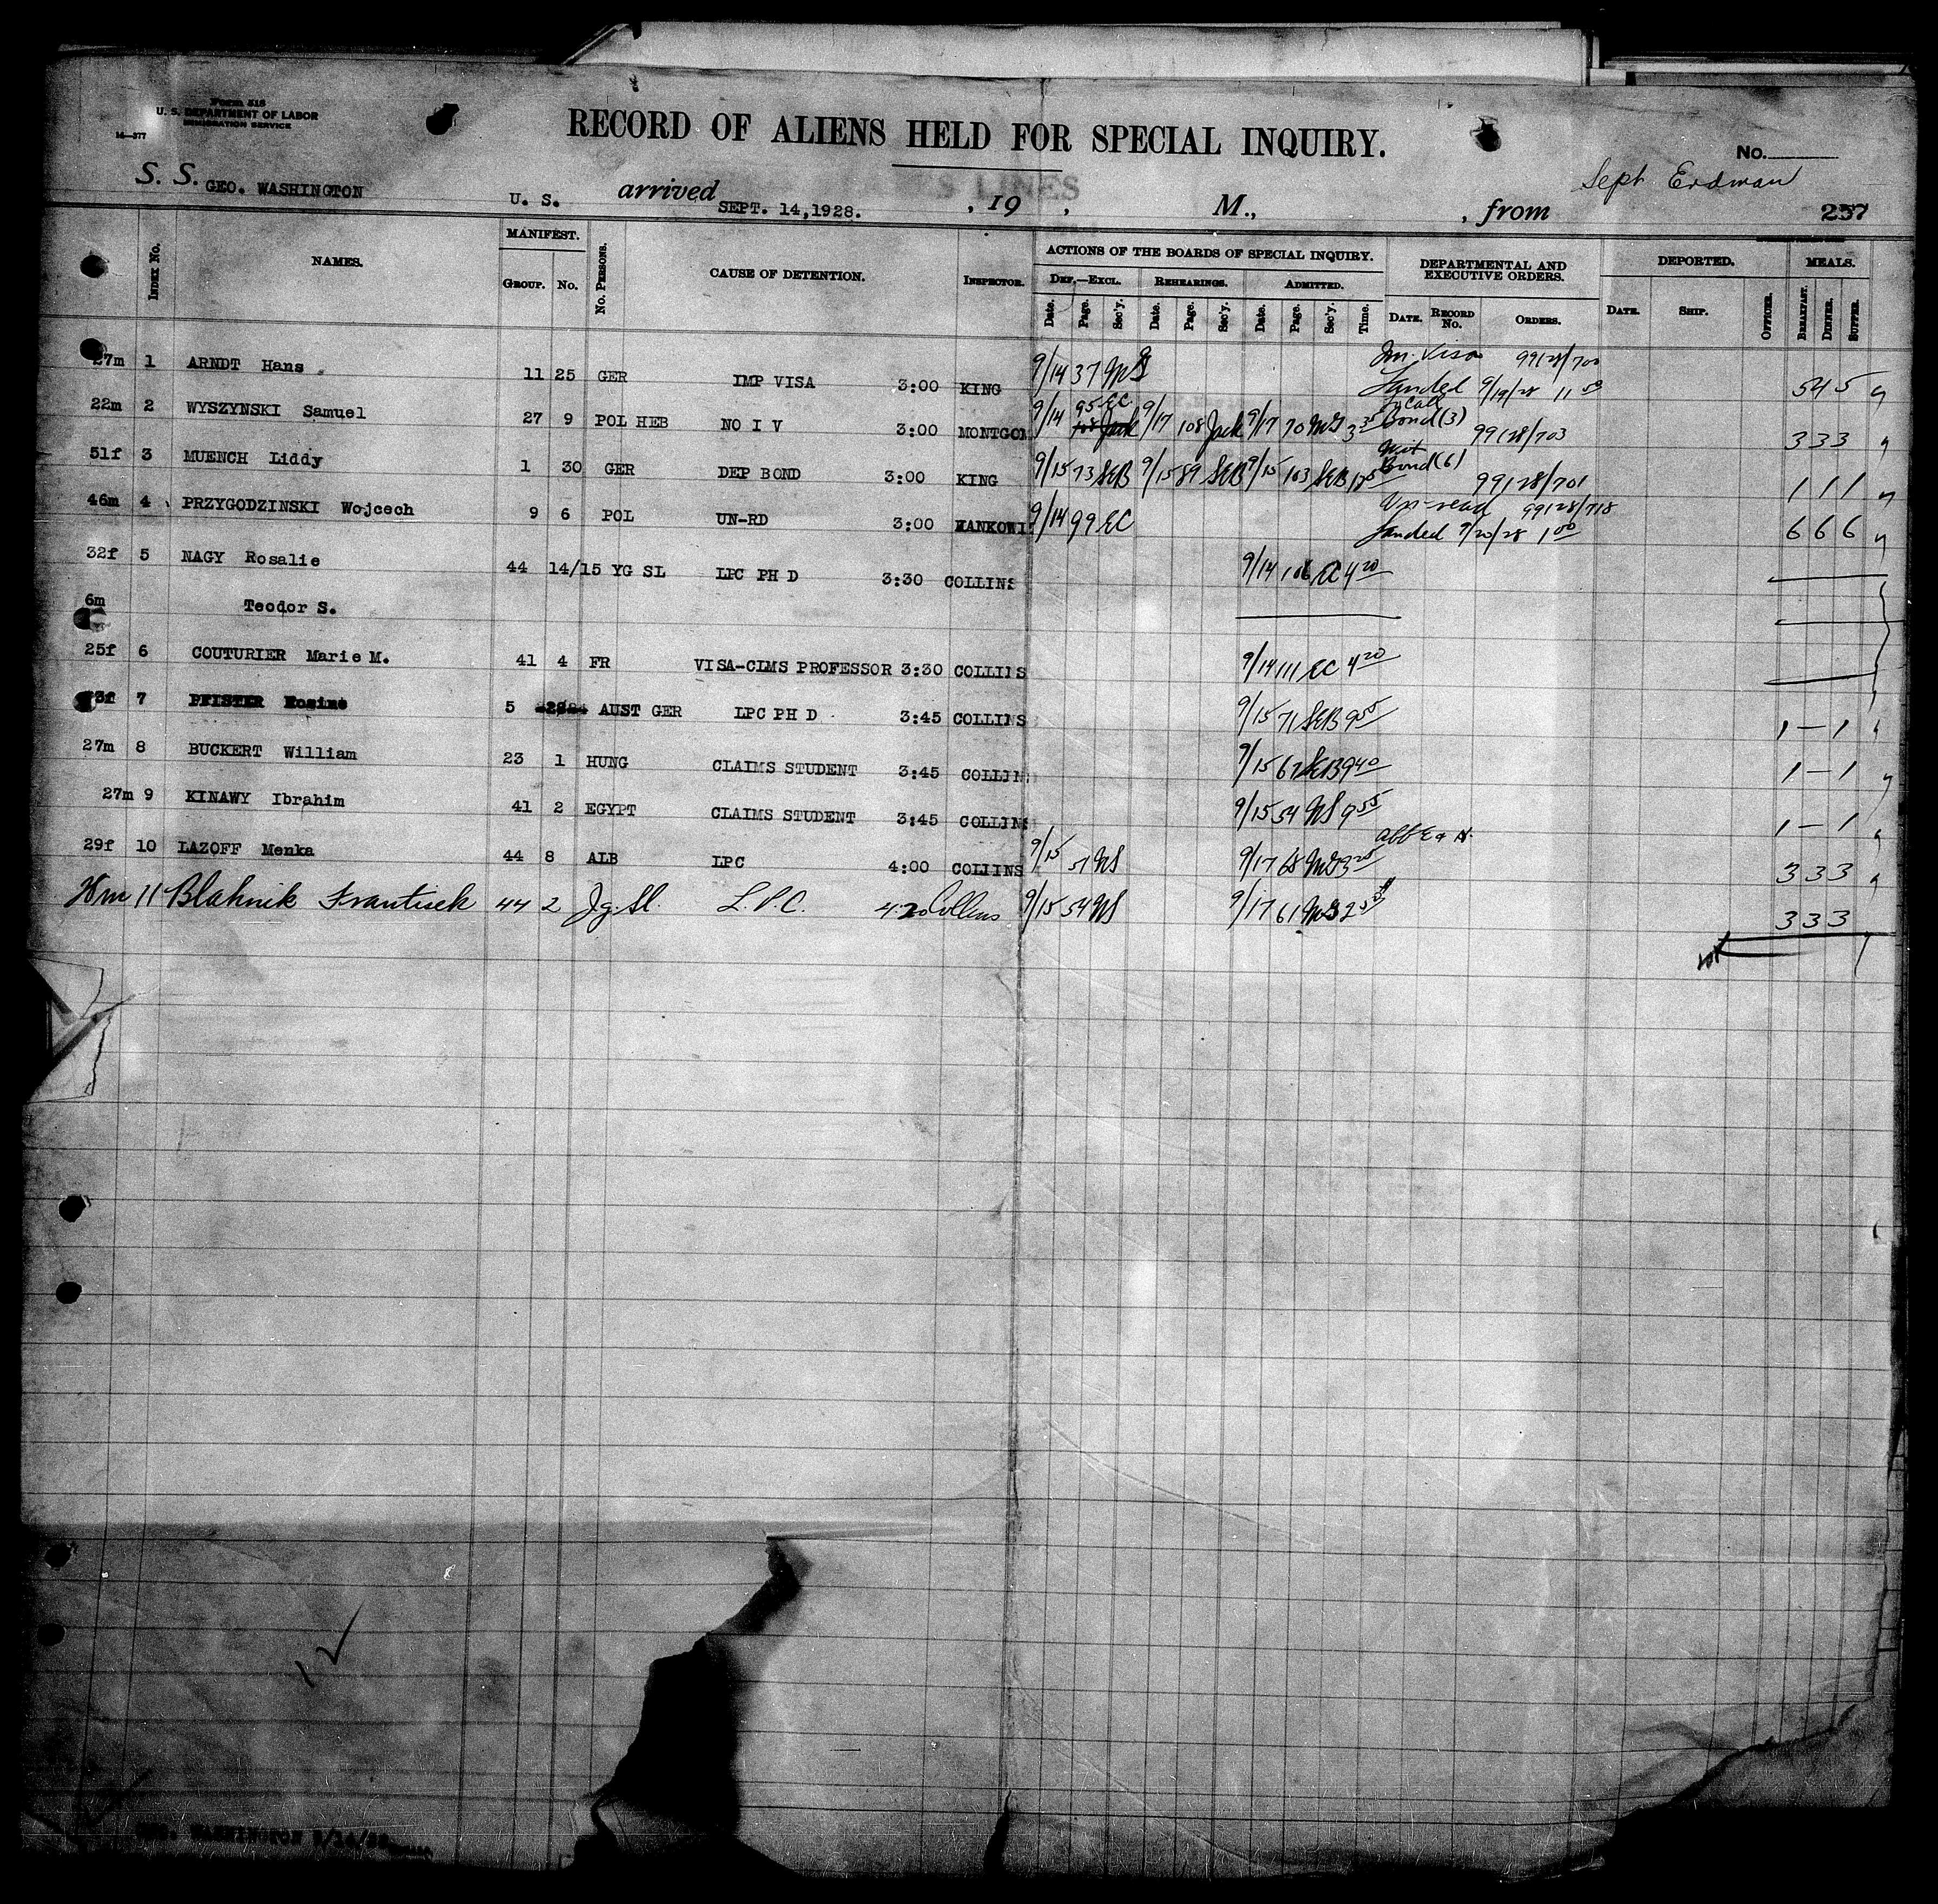 Form 518
U. S. DEPARTMENT OF LABOR
IMMIGRATION SERVICE
14—377
RECORD OF ALIENS HELD FOR SPECIAL INQUIRY.
No.
S LINES
Sept Erdman
S. S. GEO. WASHINGTON U. S. arrived SEPT. 14,1928. , 19 , M., , from
257
Index No. NAMES. MANIFEST. Group. No. No. Persons. CAUSE OF DETENTION. Inspector.
ACTIONS OF THE BOARDS OF SPECIAL INQUIRY. Def.—Excl. Rehearings. Admitted.
Date. Page. Sec'y. Date. Page. Sec'y. Date. Page. Sec'y. Time.
DEPARTMENTAL AND EXECUTIVE ORDERS. Date. Record No. Orders.
DEPORTED. Date. Ship. Officer. MEALS. Breakfast. Dinner. Supper.
27m 1 ARNDT Hans 11 25 GER IMP VISA 3:00 KING 9/14 37 Visa 99128/700 Landed 9/19/28 5 4 5
22m 2 WYSZYNSKI Samuel 27 9 POL HEB NO I V 3:00 MONTGOM 9/14 95 EC 9/17 108 Jack 9/17 70 Bond (3) 99128/703 3 3 3
51f 3 MUENCH Liddy 1 30 GER DEP BOND 3:00 KING 9/15 73 SEB 9/15 89 SEB 9/15 103 SEB Bond (6) 99128/701 1 1 1
46m 4 PRZYGODZINSKI Wojcech 9 6 POL UN-RD 3:00 MANKOWI 9/14 99 EC Un-read 99128/718 Landed 9/20/28 1 00 6 6 6
32f 5 NAGY Rosalie 44 14/15 YG SL LPC PH D 3:30 COLLINS 9/14 106 EC 4 20
6m Teodor S.
25f 6 COUTURIER Marie M. 41 4 FR VISA-CIMS PROFESSOR 3:30 COLLINS 9/14 111 EC 4 20
7 PFISTER Rosine 5 AUST GER LPC PH D 3:45 COLLINS 9/15 71 SEB 9 55 1 — 1
27m 8 BUCKERT William 23 1 HUNG CLAIMS STUDENT 3:45 COLLINS 9/15 67 SEB 9 40 1 — 1
27m 9 KINAWY Ibrahim 41 2 EGYPT CLAIMS STUDENT 3:45 COLLINS 9/15 54 NS 9 55 1 — 1
29f 10 LAZOFF Menka 44 8 ALB LPC 4:00 COLLINS 9/15 51 NS 9/17 68 3 25 3 3 3
11 Blahnik Frantisek 44 2 L.P.C. 4:20 Collins 9/15 54 NS 9/17 61 3 3 3
GEO. WASHINGTON 9/14/28